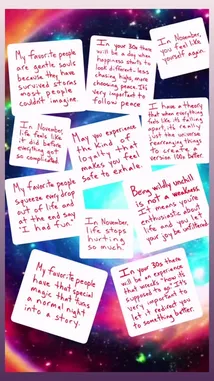 My favorite people
are gentle souls
because they have
survived storms
most people
couldn't imagine.
In your 30s there
will be a day when
happiness starts to
look different - less
chasing highs, more
choosing peace. It's
very important to
follow peace
In November,
you feel like
yourself again.
In November,
life feels like
it did before
everything got
so complicated.
May you experience
the kind of
loyalty that
makes you feel
safe to exhale.
I have a theory
that when everything
feels like it's falling
apart, it's really
just the universe
rearranging things
to create a
version 100x better.
My favorite people
squeeze every drop
out of life and
at the end say
"I had fun."
In November,
life stops
hurting
so much.
Being wildly uncool
is not a weakness
it means you're
enthusiastic about
life and you let
your joy be unfiltered.
My favorite people
have that special
magic that turns
a normal night
into a story.
In your 30s there
will be an experience
that wrecks "how it's
supposed to go". It's
very important to
let it redirect you
to something better.